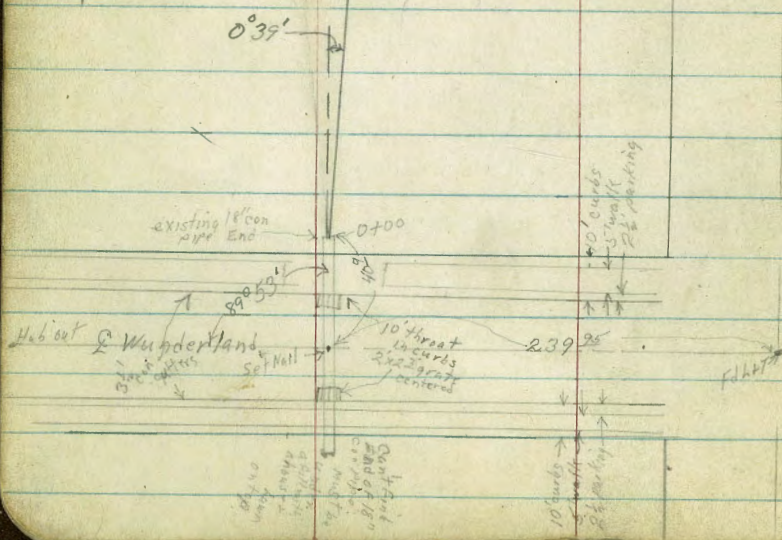 0°39'
existing 18" con
pipe End
0+00
40'
89°53'
Hub out
℄ Wunderland
Set Nail
3½' con
gutters
10' throat
in curbs
2'x2½' grate
centered
239.95
Fd L&T
10' curbs
5' walk
2½' parking
10' curbs
5' walk
2½' parking
Can't find
End of 18"
con pipe
must be
under